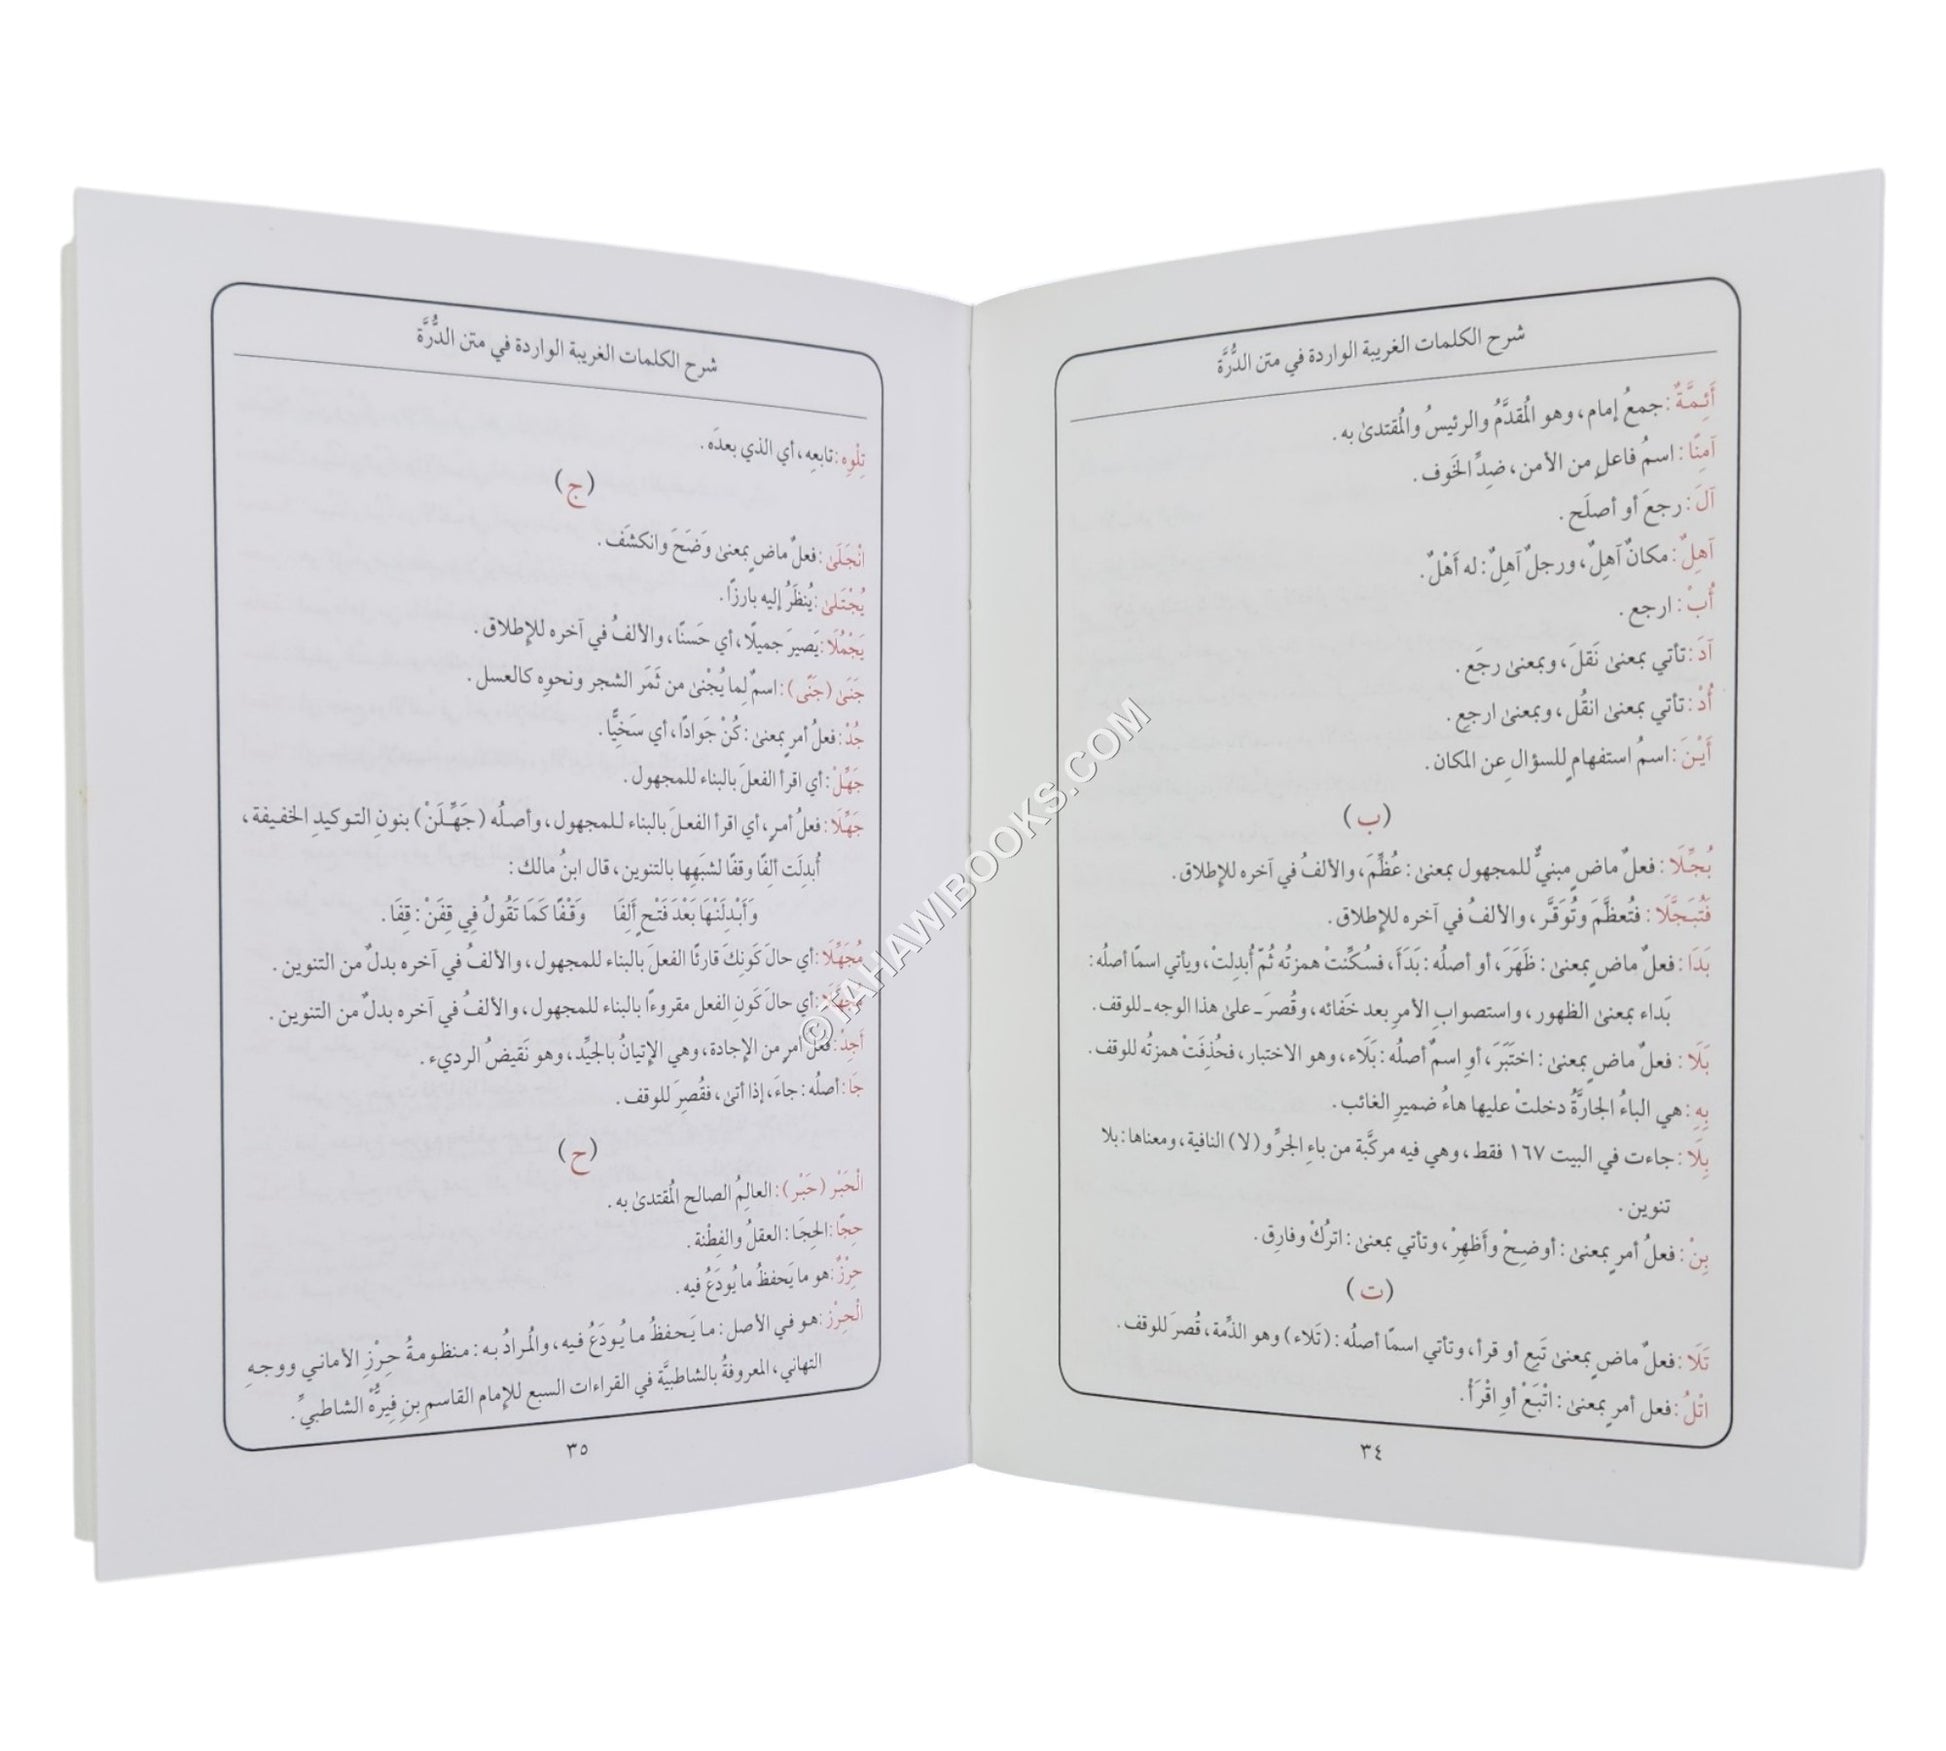 شرح الكلمات الغريبة الواردة في متن الدُّرَّة
أَئِمَّةٌ: جمعُ إمام، وهو المُقدَّمُ والرئيسُ والمُقتدىٰ به.
آمِنًا: اسمُ فاعلٍ من الأمن، ضِدِّ الخَوف.
آلَ: رجعَ أو أصلَح.
آهِلٌ: مكانٌ آهِلٌ، ورجلٌ آهِلٌ: له أَهْلٌ.
أُبْ: ارجع.
آدَ: تأتي بمعنىٰ نَقلَ، وبمعنىٰ رجَع.
أُدْ: تأتي بمعنىٰ انقُل، وبمعنىٰ ارجع.
أَيْنَ: اسمُ استفهامٍ للسؤالِ عن المكان.
(ب)
بُجِّلَا: فعلٌ ماضٍ مبنيٌّ للمجهول بمعنىٰ: عُظِّمَ، والألفُ في آخره للإطلاق.
فَتُبَجَّلَا: فتُعظَّمَ وتُوَقَّر، والألفُ في آخره للإطلاق.
بَدَا: فعلٌ ماضٍ بمعنىٰ: ظَهَرَ، أو أصلُه: بَدَأَ، فسُكِّنتْ همزتُه ثمّ أُبدِلتْ، ويأتي اسمًا أصلُه:
بَداء بمعنىٰ الظهور، واستصوابِ الأمرِ بعد خَفائه، وقُصرَ ـ علىٰ هذا الوجه ـ للوقف.
بَلَا: فعلٌ ماضٍ بمعنىٰ: اختَبَرَ، أوِ اسمٌ أصلُه: بَلَاء، وهو الاختبار، فحُذِفَتْ همزتُه للوقف.
بِهِ: هي الباءُ الجارَّةُ دخلتْ عليها هاءُ ضميرِ الغائب.
بِلَا: جاءت في البيت ١٦٧ فقط، وهي فيه مركَّبة من باءِ الجرِّ و(لا) النافية، ومعناها: بلا
تنوين.
بِنْ: فعلُ أمرٍ بمعنىٰ: أوضِحْ وأَظهِرْ، وتأتي بمعنىٰ: اترُكْ وفارِق.
(ت)
تَلَا: فعلٌ ماضٍ بمعنىٰ تَبِع أو قرأ، وتأتي اسمًا أصلُه: (تَلاء) وهو الذِّمة، قُصرَ للوقف.
اتْلُ: فعل أمرٍ بمعنىٰ: اتْبَعْ أوِ اقْرَأْ.
٣٤
شرح الكلمات الغريبة الواردة في متن الدُّرَّة
تِلْوِه: تابعِه، أي الذي بعدَه.
(ج)
انْجَلَىٰ: فعلٌ ماضٍ بمعنىٰ وَضَحَ وانكشَف.
يُجْتَلىٰ: يُنظَرُ إليه بارزًا.
يَجْمُلَا: يَصيرَ جميلًا، أي حَسنًا، والألفُ في آخره للإطلاق.
جَنَىٰ (جَنًى): اسمٌ لِما يُجْنىٰ من ثَمَر الشجر ونحوِه كالعسل.
جُدْ: فعلُ أمرٍ بمعنىٰ: كُنْ جَوادًا، أي سَخيًّا.
جَهِّلْ: أي اقرأ الفعلَ بالبناء للمجهول.
جَهِّلَا: فعلُ أمرٍ، أي اقرأ الفعلَ بالبناء للمجهول، وأصلُه (جَهِّلَنْ) بنونِ التوكيدِ الخفيفة،
أُبدِلَت ألِفًا وقفًا لشبَهِها بالتنوين، قال ابنُ مالك:
وَأَبْدِلَنْهَا بَعْدَ فَتْحٍ أَلِفَا وَقْفًا كَمَا تَقُولُ فِي قِفَنْ: قِفَا.
مُجَهِّلَا: أي حالَ كَونِكَ قارئًا الفعلَ بالبناء للمجهول، والألفُ في آخره بدلٌ من التنوين.
مُجَهَّلَا: أي حالَ كَونِ الفعل مقروءًا بالبناء للمجهول، والألفُ في آخره بدلٌ من التنوين.
أَجِدْ: فعلُ أمرٍ من الإجادة، وهي الإتيانُ بالجيِّد، وهو نَقيضُ الرديء.
جَا: أصلُه: جاءَ، إذا أتىٰ، فقُصِرَ للوقف.
(ح)
الْحَبْر (حَبْر): العالِمُ الصالح المُقتدىٰ به.
حِجًا: الحِجَا: العقلُ والفِطْنة.
حِرْزٌ: هو ما يَحفظُ ما يُودَعُ فيه.
الْحِرْز: هو في الأصل: ما يَحفظُ ما يُودَعُ فيه، والمُرادُ به: منظومةُ حِرْزِ الأماني ووجهِ
التهاني، المعروفةُ بالشاطبيَّة في القراءات السبع للإمام القاسمِ بنِ فِيرُّهْ الشاطبيِّ.
٣٥
©TAHAWIBOOKS.COM